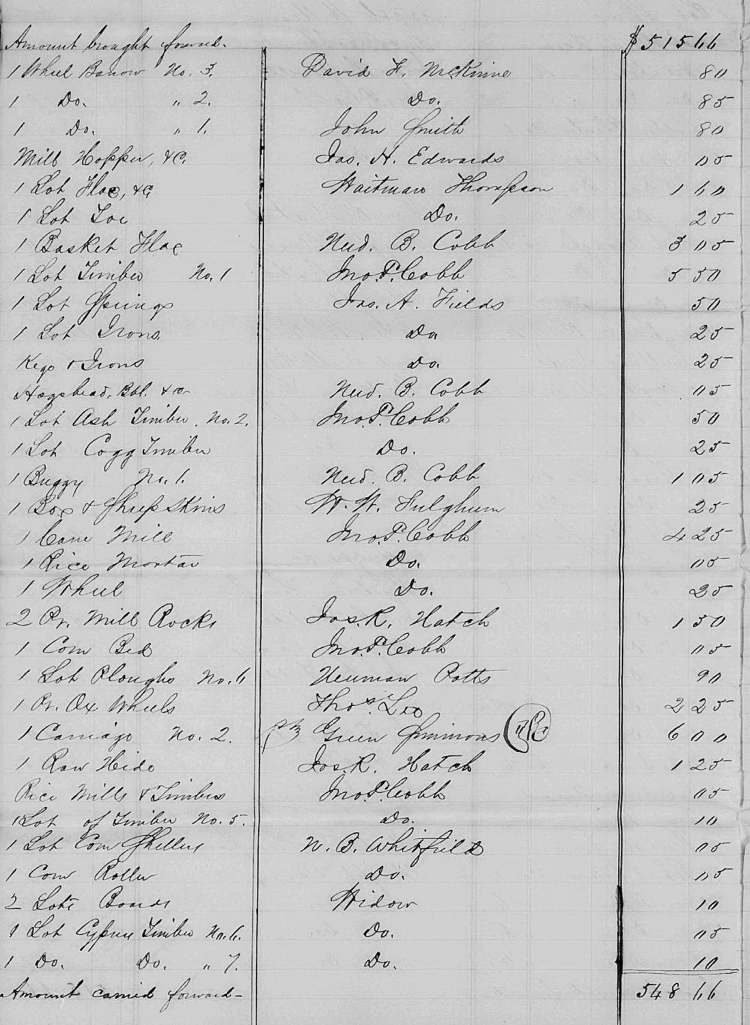 Amount brought forward- $515 66
1 Wheel Barrow No. 3. David F. McKinne 80
1 Do. " 2. Do. 85
1 Do. " 1. John Smith 80
Mill Hopper, &c. Jas. H. Edwards 05
1 Lot Flax, &c Waitman Thompson 1 60
1 Lot Do. 25
1 Basket Flax Need. B. Cobb 3 05
1 Lot Timber No. 1 Jno. P. Cobb 5 50
1 Lot Springs Jas. A. Fields 50
1 Lot Irons Do. 25
Kegs & Irons Do. 25
Hogshead, Bbl. &c- Need. B. Cobb 05
1 Lot Ash Timber. No. 2. Jno. P. Cobb 50
1 Lot Cogg Timber Do. 25
1 Buggy No. 1. Need. B. Cobb 1 05
1 Box & Sheep Skins W. H. Fulghum 25
1 Cane Mill Jno. P. Cobb 4 25
1 Rice Mortar Do. 05
1 Wheel Do. 25
2 Pr. Mill Rocks Jos. R. Hatch 1 50
1 Corn Bed Jno. P. Cobb 05
1 Lot Ploughs No. 6 Neuman Potts 90
1 Pr. Ox Wheels Thos. Lee 2 25
1 Carriage No. 2. Green Simmons 6 00
1 Raw Hide Jos. R. Hatch 1 25
Rice Mills & Timber Jno. P. Cobb 05
1 Lot of Timber No. 5. Do. 10
1 Lot Corn Shellers N. B. Whitfield 05
1 Corn Roller Do. 05
2 Lots Boards Widow 10
1 Lot Cypress Timber No. 6. Do. 05
1 Do. Do. " 7. Do. 10
Amount carried forward- 548 66